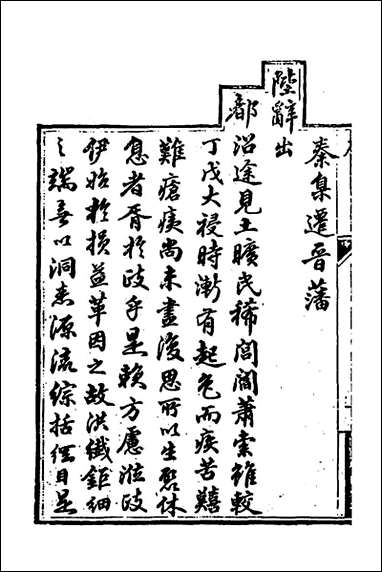 秦臬遷晉藩
陛辭出
都沿途見土曠民稀閭閻蕭索雖較
丁戊大祲時漸有起色而疾苦囏
難瘡痍尚未盡復思所以生聚休
息者胥於政乎是賴方慮涖政
伊始於損益革因之故洪纖鉅細
之端無以洞悉源流綜括綱目是